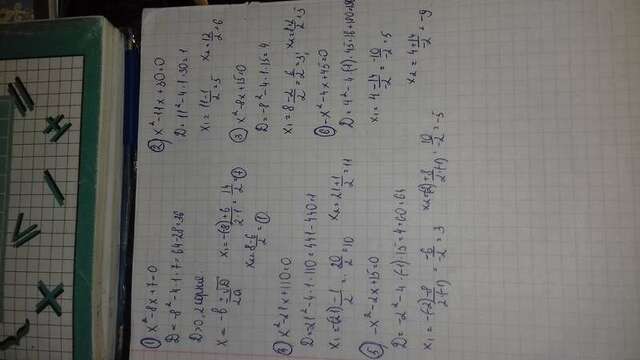 ① x²-8x+7=0
D=-8²-4·1·7=64-28=36
D>0, 2 корня
x=-b±√D/2a
x₁=-(-8)+6/2·1=14/2=⑦
x₂=8-6/2=①
② x²-11x+30=0
D=11²-4·1·30=1
x₁=11-1/2=5 x₂=12/2=6
③ x²-8x+15=0
D=-8²-4·1·15=4
x₁=8-2/2=6/2=3, x₂=8+2/2
④ x²-21x+110=0
D=-21²-4·1·110=441-440=1
x₁=-(-21)-1/2=20/2=10 x₂=21+1/2=11
⑤ -x²-2x+15=0
D=-2²-4·(-1)·15=4+60=64
x₁=-(-2)-8/2·(-1)=-6/-2=3 x₂=-(-2)+8/2·(-1)=10/-2=-5
⑥ -x²-4x+45=0
D=4²-4·(-1)·45=16+180=196
x₁=4-14/-2=-10/-2=5
x₂=4+14/-2=-9